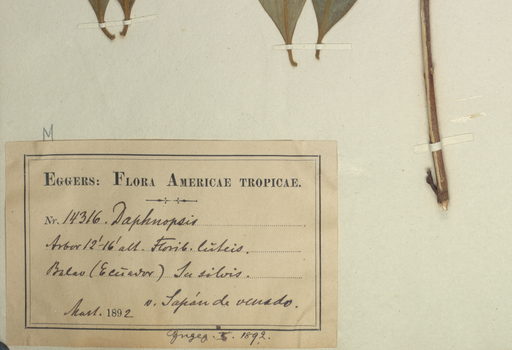 M
EGGERS: FLORA AMERICAE TROPICAE.
Nr. 14316. Daphnopsis
Arbor 12'-16' alt. Florib. luteis.
Balao (Ecuador) In silvis.
v. Sapán de venado.
Mart. 1892
1892.